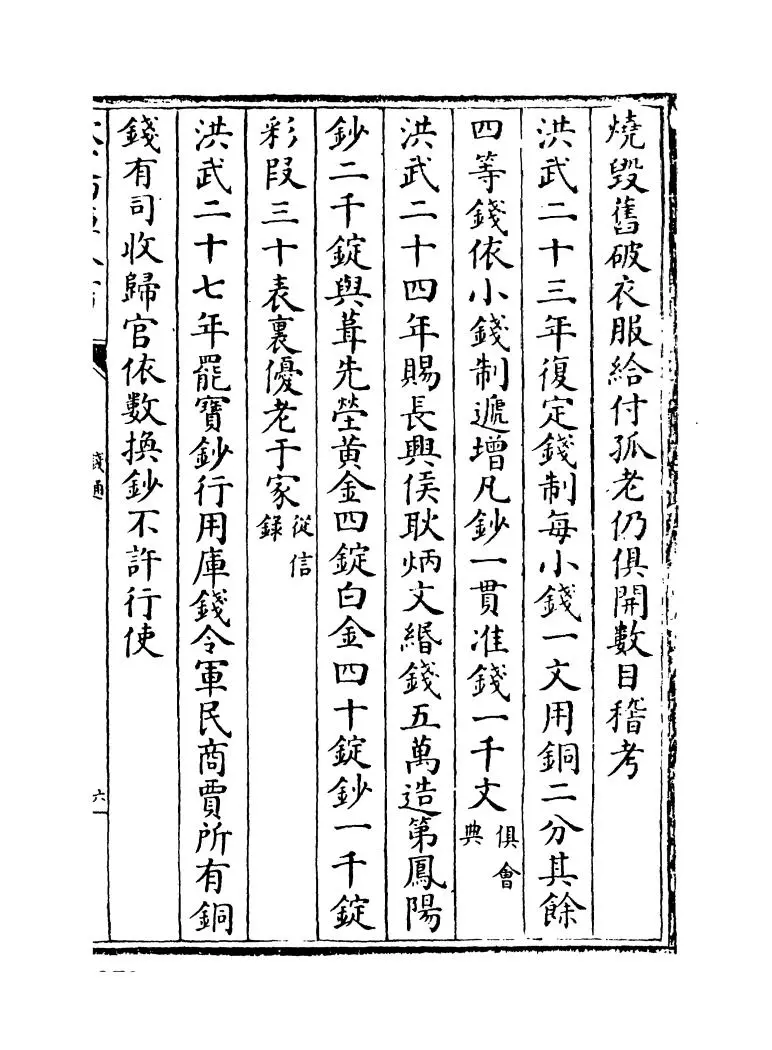 燒毀舊破衣服給付孤老仍俱開數目稽考
洪武二十三年復定錢制每小錢一文用銅二分其餘
四等錢依小錢制遞增凡鈔一貫准錢一千文俱會典
洪武二十四年賜長興侯耿炳文緡錢五萬造第鳳陽
鈔二千錠與葺先塋黃金四錠白金四十錠鈔一千錠
彩段三十表裏優老于家從信錄
洪武二十七年罷寶鈔行用庫錢令軍民商賈所有銅
錢有司收歸官依數換鈔不許行使
錢通
六